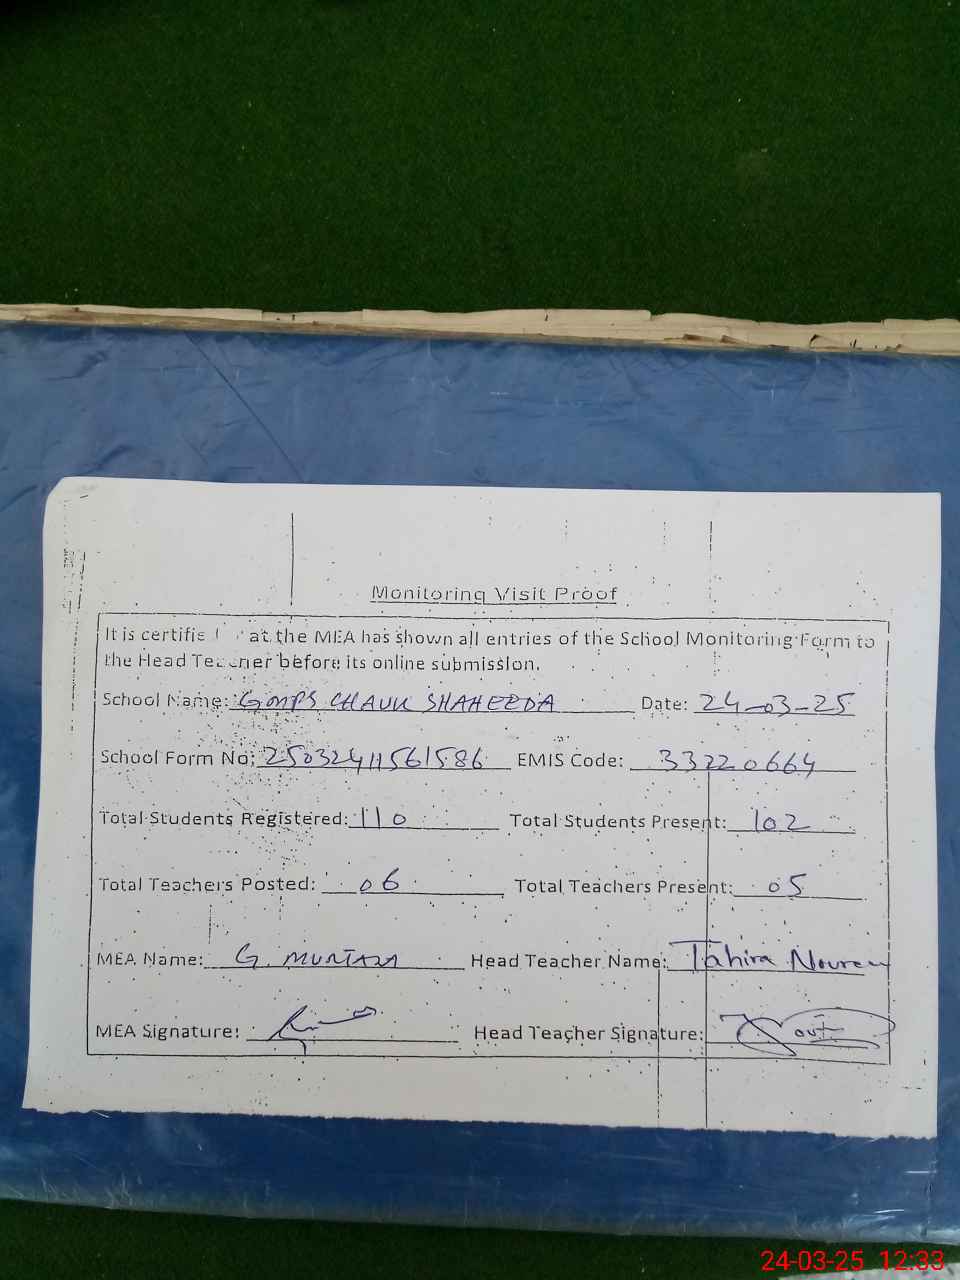 Monitoring Visit Proof
It is certifie at the MEA has shown all entries of the School Monitoring Form to
the Head Teacher before its online submission.
School Name: GMPS CHAUK SHAHEEDA Date: 24-03-25
School Form No: 25032411561586 EMIS Code: 33220664
Total Students Registered: 110 Total Students Present: 102
Total Teachers Posted: 06 Total Teachers Present: 05
MEA Name: G. MURTAZA Head Teacher Name: Tahira Noureen
MEA Signature: Head Teacher Signature:
24-03-25 12:33